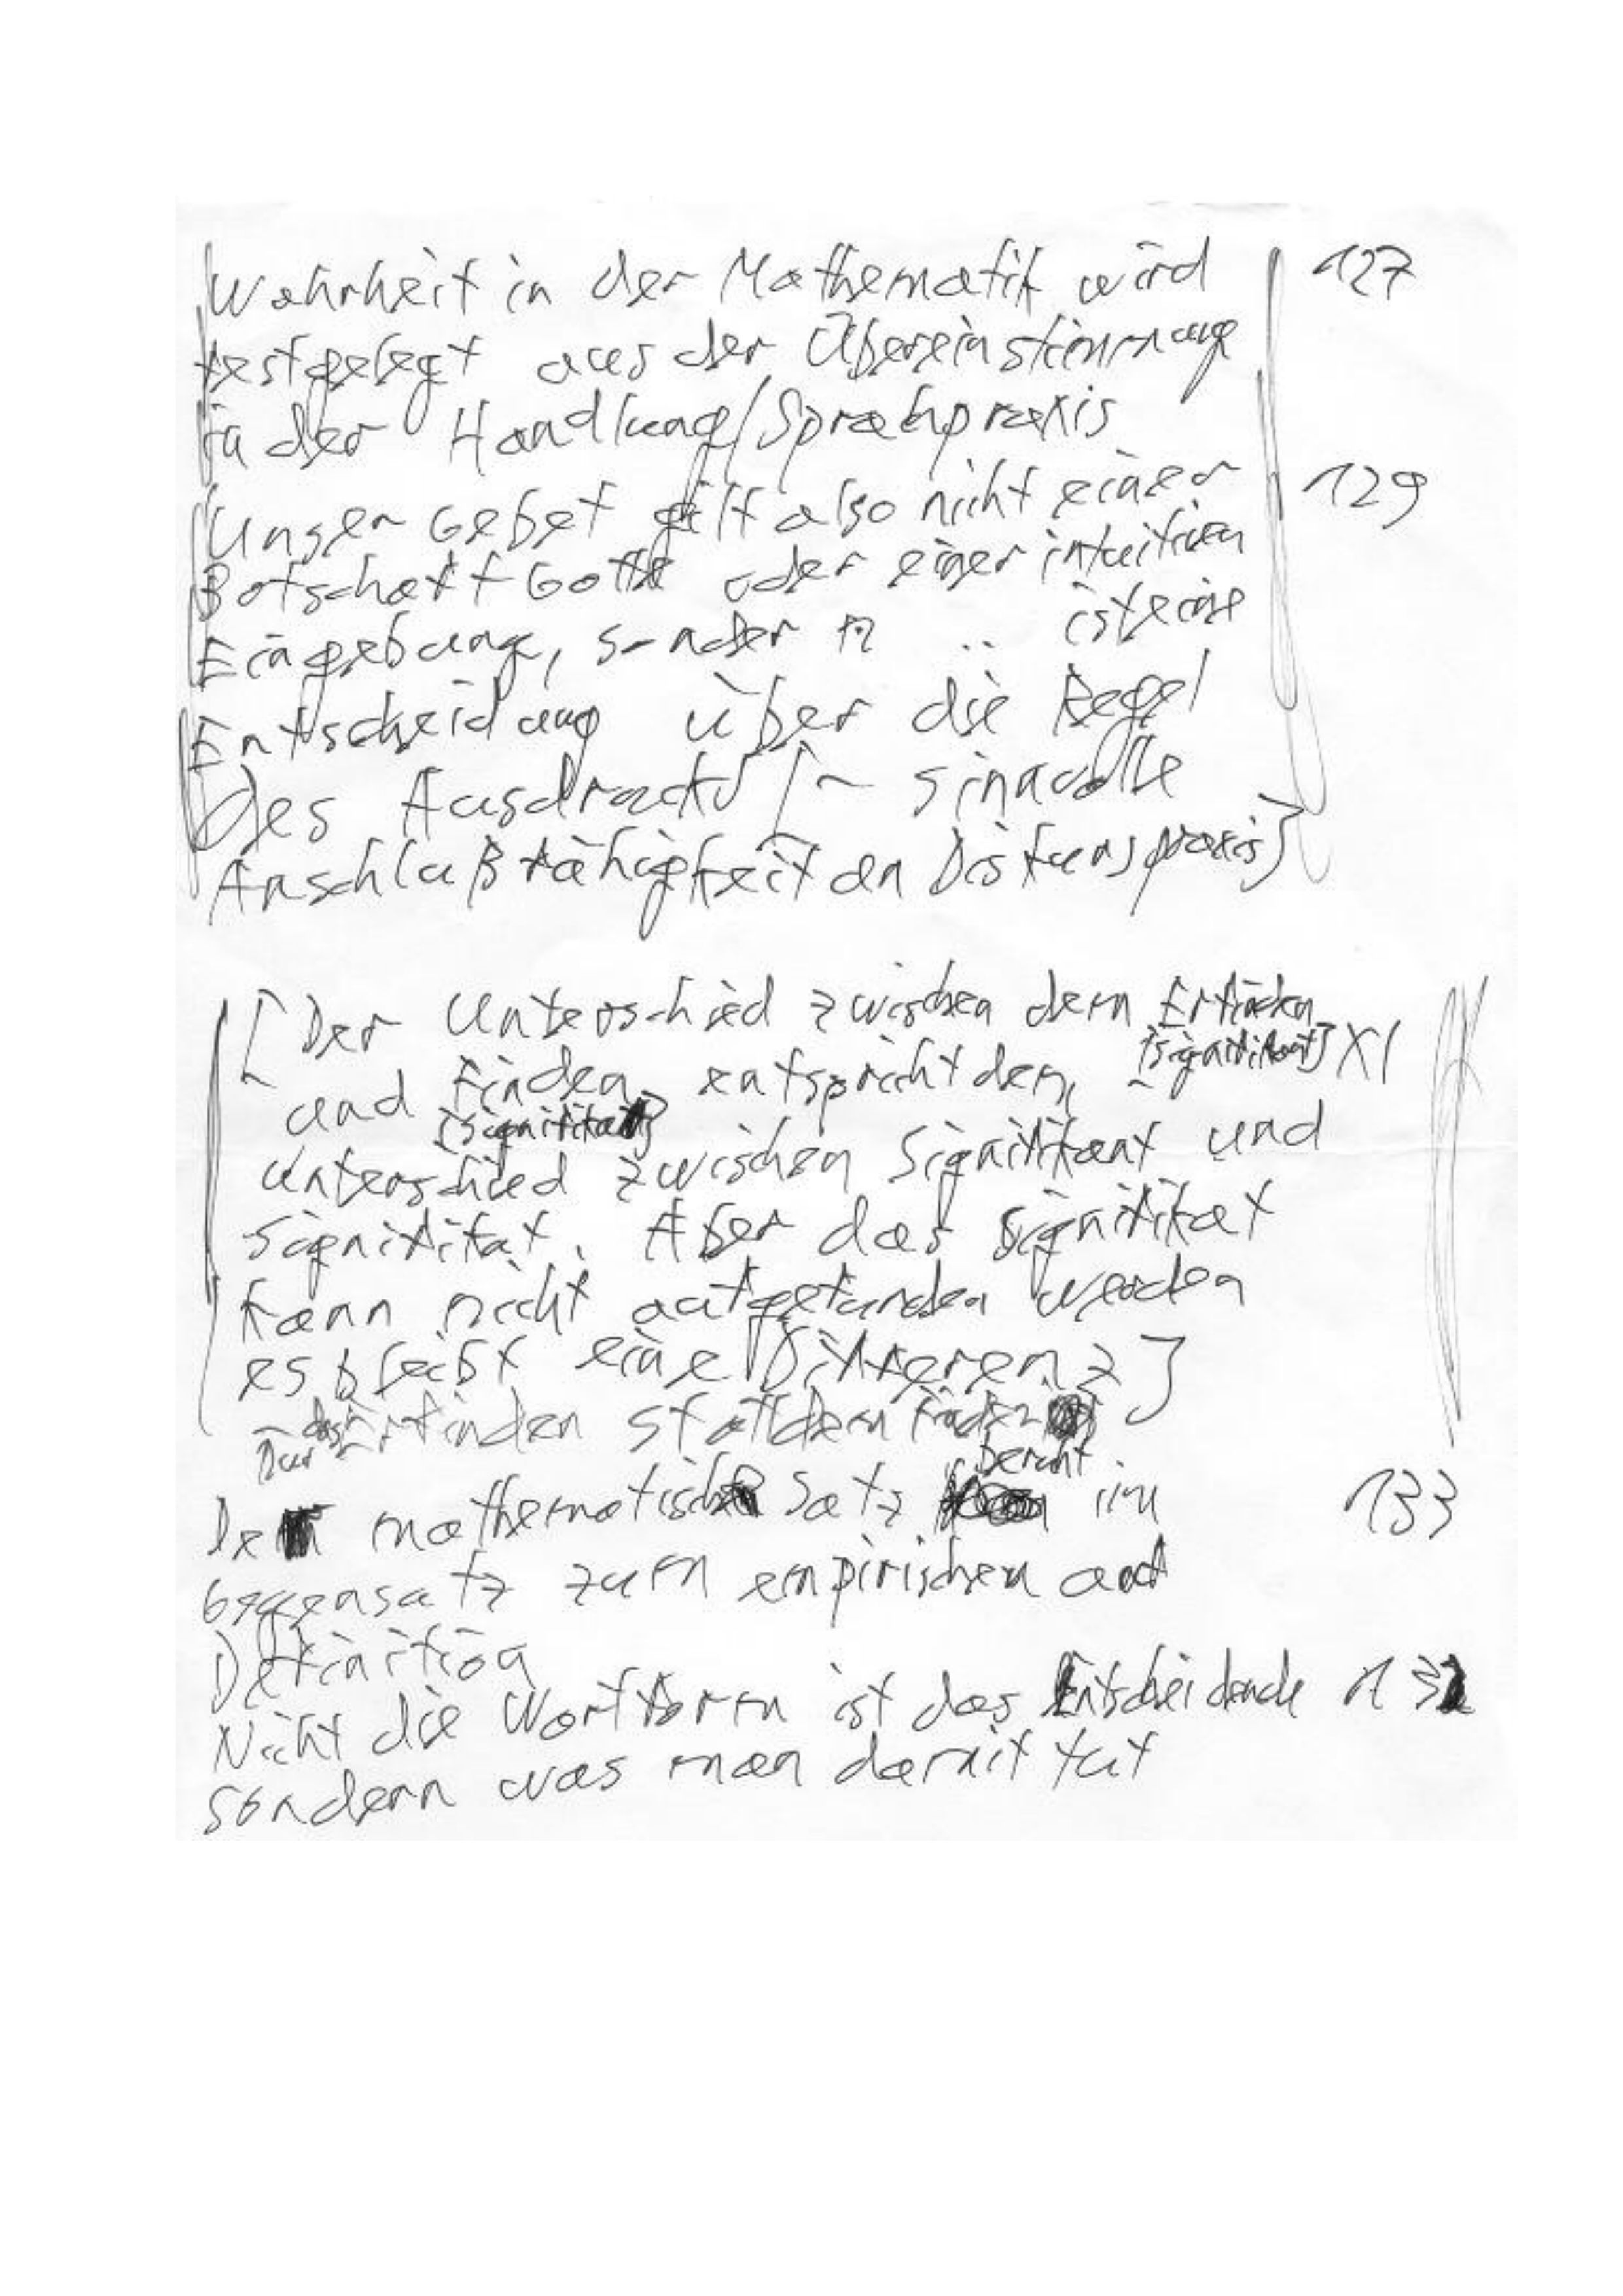 Wahrheit in der Mathematik wird 127
festgelegt aus der Übereinstimmung
in der Handlung/Sprachpraxis
Unser Gebet gilt also nicht einer 129
Botschaft Gottes oder einer intuitiven
Eingebung, sondern .. ist eine
Entscheidung über die Regel
des Ausdrucks [~ sinnvolle
Anschlußfähigkeit an Diskurspraxis]
[Der Unterschied zwischen dem Erfinden
[Signifikant] XI
und Finden entspricht dem
[Signifikat]
Unterschied zwischen Signifikant und
Signifikat. Aber das Signifikat
kann nicht aufgefunden werden
es bleibt eine Differenz]
das Erfinden statt dem Finden
Der mathematische Satz beruht im 133
Gegensatz zum empirischen auf
Definition
Nicht die Wortform ist das Entscheidende 132
sondern was man damit tut